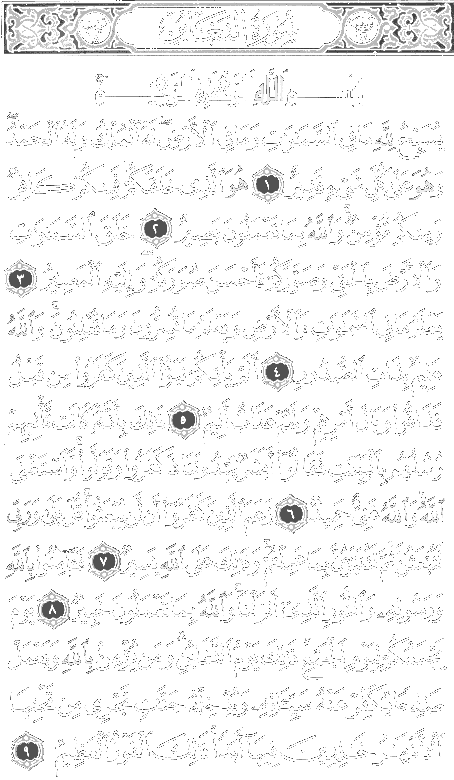 سورة التغابن
بسم الله الرحمن الرحيم
يسبح لله ما في السماوات وما في الأرض له الملك وله الحمد
وهو على كل شيء قدير ١ هو الذي خلقكم فمنكم كافر
ومنكم مؤمن والله بما تعملون بصير ٢ خلق السماوات
والأرض بالحق وصوركم فأحسن صوركم وإليه المصير ٣
يعلم ما في السماوات والأرض ويعلم ما تسرون وما تعلنون والله
عليم بذات الصدور ٤ ألم يأتكم نبأ الذين كفروا من قبل
فذاقوا وبال أمرهم ولهم عذاب أليم ٥ ذلك بأنه كانت تأتيهم
رسلهم بالبينات فقالوا أبشر يهدوننا فكفروا وتولوا واستغنى
الله والله غني حميد ٦ زعم الذين كفروا أن لن يبعثوا قل بلى وربي
لتبعثن ثم لتنبؤن بما عملتم وذلك على الله يسير ٧ فآمنوا بالله
ورسوله والنور الذي أنزلنا والله بما تعملون خبير ٨ يوم
يجمعكم ليوم الجمع ذلك يوم التغابن ومن يؤمن بالله ويعمل
صالحا يكفر عنه سيئاته ويدخله جنات تجري من تحتها
الأنهار خالدين فيها أبدا ذلك الفوز العظيم ٩